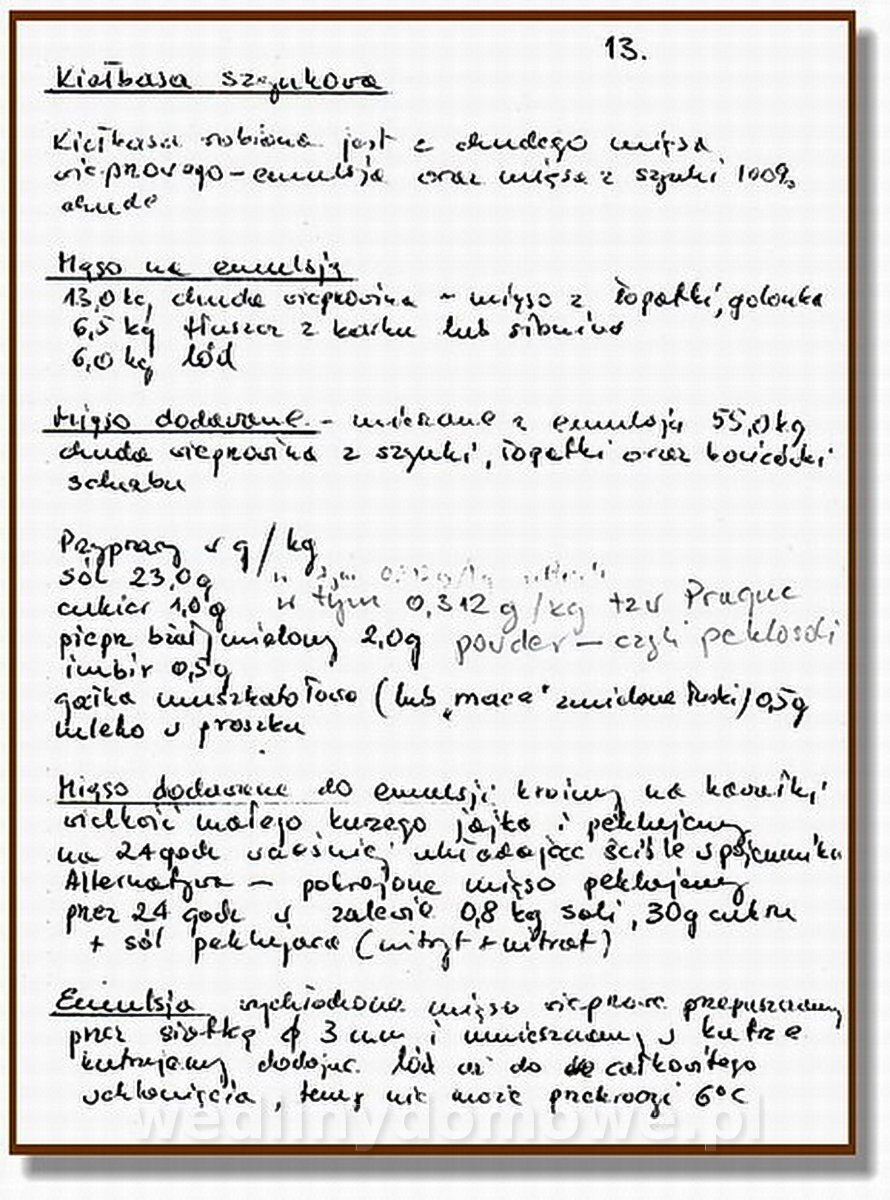 13.
Kiełbasa szynkowa
Kiełbasa robiona jest z chudego mięsa
wieprzowego - emulsja oraz mięsa z szynki 100%
chude
Mięso na emulsję
13,0 kg chuda wieprowina - mięso z łopatki, golonka
6,5 kg tłuszcz z karku lub słonina
6,0 kg lód
Mięso dodawane - mieszane z emulsją 55,0 kg
chuda wieprowina z szynki, łopatki oraz końcówki
schabu
Przyprawy w g/kg
sól 23,0g
cukier 1,0g w tym 0,312 g/kg tzw Prague
pieprz biały mielony 2,0g powder - czyli peklosoli
imbir 0,5g
gałka muszkatołowa (lub „maca" zmielone łuski) 0,5g
mleko w proszku
Mięso dodawane do emulsji kroimy na kawałki
wielkość małego kurzego jajka i peklujemy
na 24 godz wcześniej układając ściśle w pojemniku
Alternatywa - pokrojone mięso peklujemy
przez 24 godz w zalewie 0,8 kg soli, 30g cukru
+ sól peklująca (nitryt + nitrat)
Emulsja wychłodzone mięso wieprzowe przepuszczamy
przez siatkę ϕ 3 mm i umieszczamy w kutrze
kutrujemy dodając lód aż do całkowitego
wchłonięcia, temp nie może przekroczyć 6°C
wedlinydomowe.pl